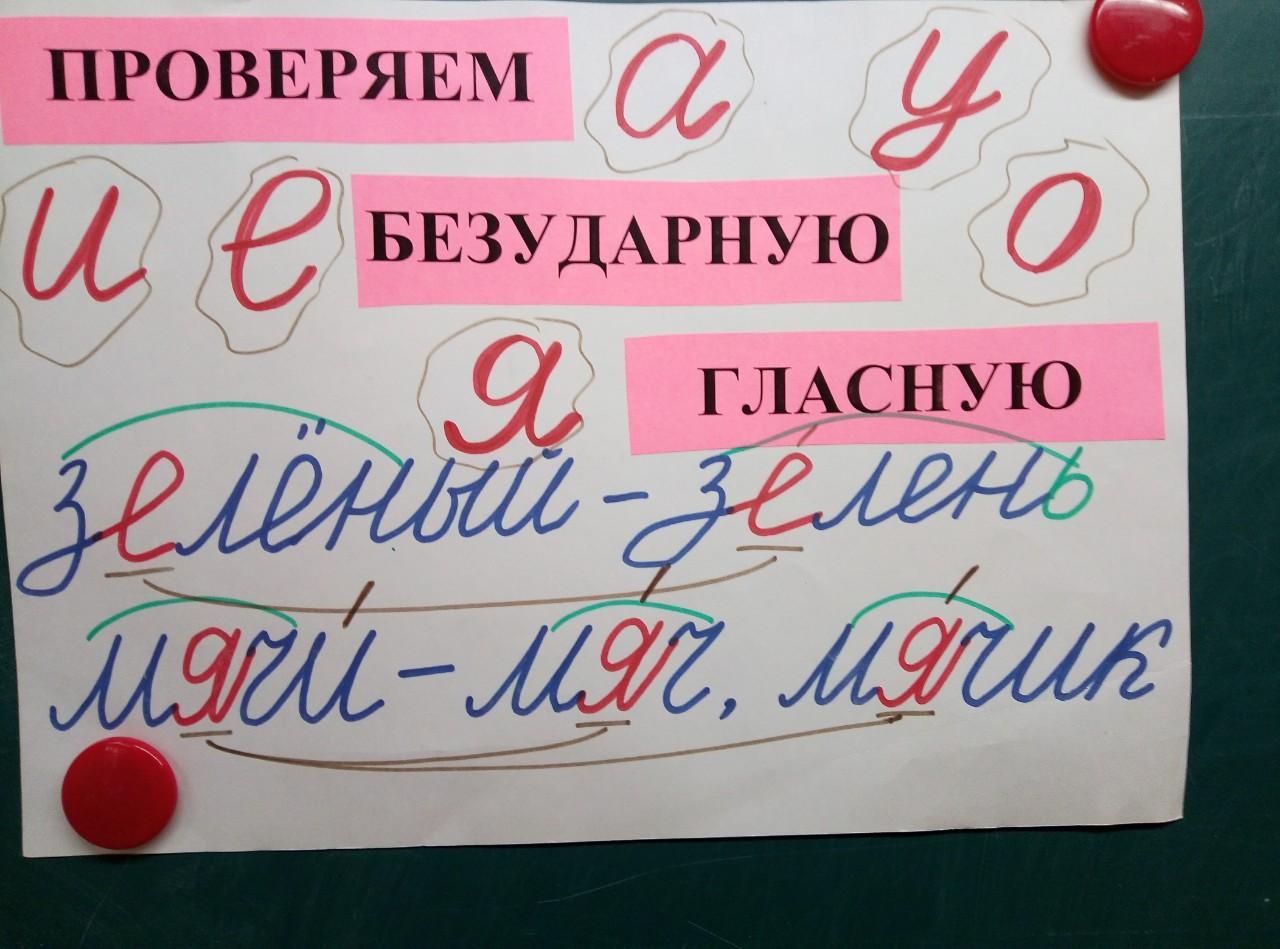 ПРОВЕРЯЕМ а у
и е БЕЗУДАРНУЮ о
я ГЛАСНУЮ
зелёный – зе́лень
мячи́ – мя́ч, мя́чик